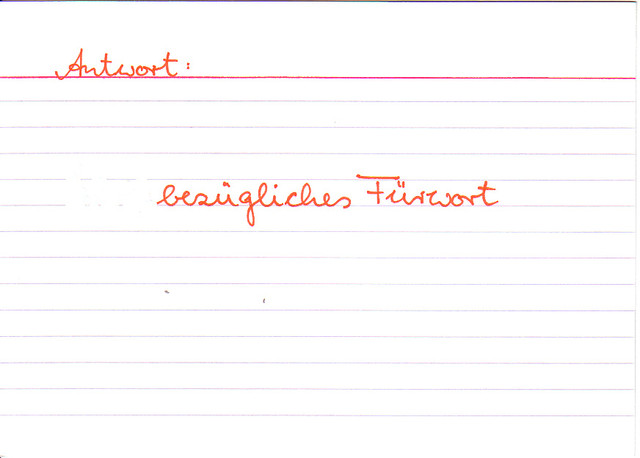 Antwort:
bezügliches Fürwort